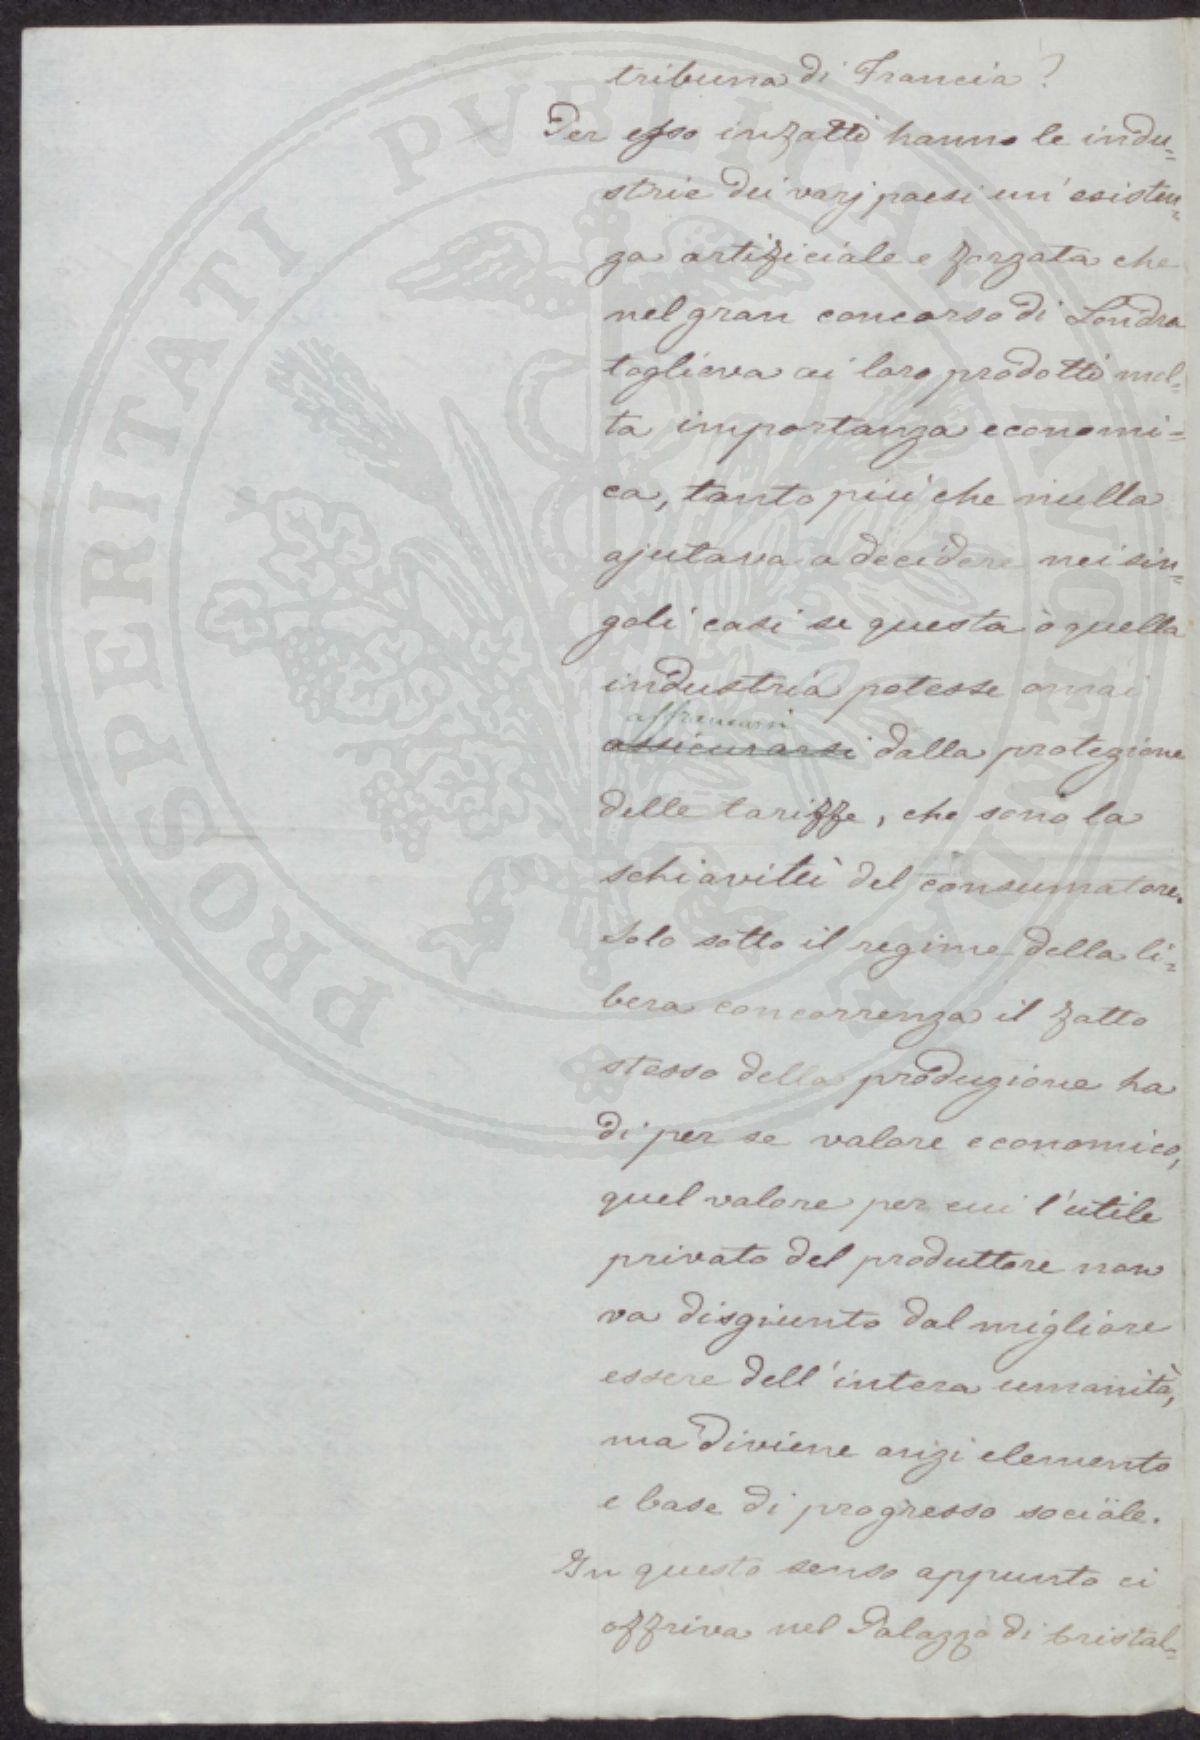 tribuna di Francia?
Per esso infatti hanno le indu=
strie dei varj paesi un'esisten=
za artificiale e forzata che
nel gran concorso di Londra
toglieva ai loro prodotti mol=
ta importanza economi=
ca, tanto più che nulla
ajutava a decidere nei sin=
goli casi se questa o quella
industria potesse omai
affrancarsi
assicurarsi dalla protezione
delle tariffe, che sono la
schiavitù del consumatore.
Solo sotto il regime della li=
bera concorrenza il fatto
stesso della produzione ha
di per se valore economico,
quel valore per cui l'utile
privato del produttore non
va disgiunto dal migliore
essere dell'intera umanità,
ma diviene anzi elemento
e base di progresso sociale.
In questo senso appunto ci
offriva nel Palazzo di Cristal=
PROSPERITATI PVBLICAE AVGENDAE